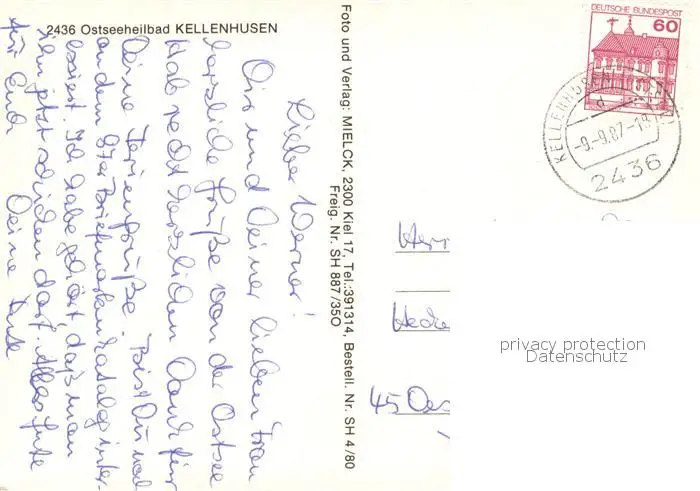 2436 Ostseeheilbad KELLENHUSEN
Lieber Werner!
Dir und Deiner lieben Frau
herzliche Grüße von der Ostsee
Hab recht herzlichen Dank für
Deine Feriengrüße. Bist Du noch
an dem 87er Briefmarkenkatalog inter-
essiert. Ich habe gehört, daß man
ihn jetzt schicken darf. Alles Gute
für Euch Deine
Foto und Verlag: MIELCK, 2300 Kiel 17, Tel.:391314, Bestell. Nr. SH 4/80
Freig. Nr. SH 887/350
DEUTSCHE BUNDESPOST
60
KELLENHUSEN
d
-9.-9.87-18
2436
Herr
45
privacy protection
Datenschutz